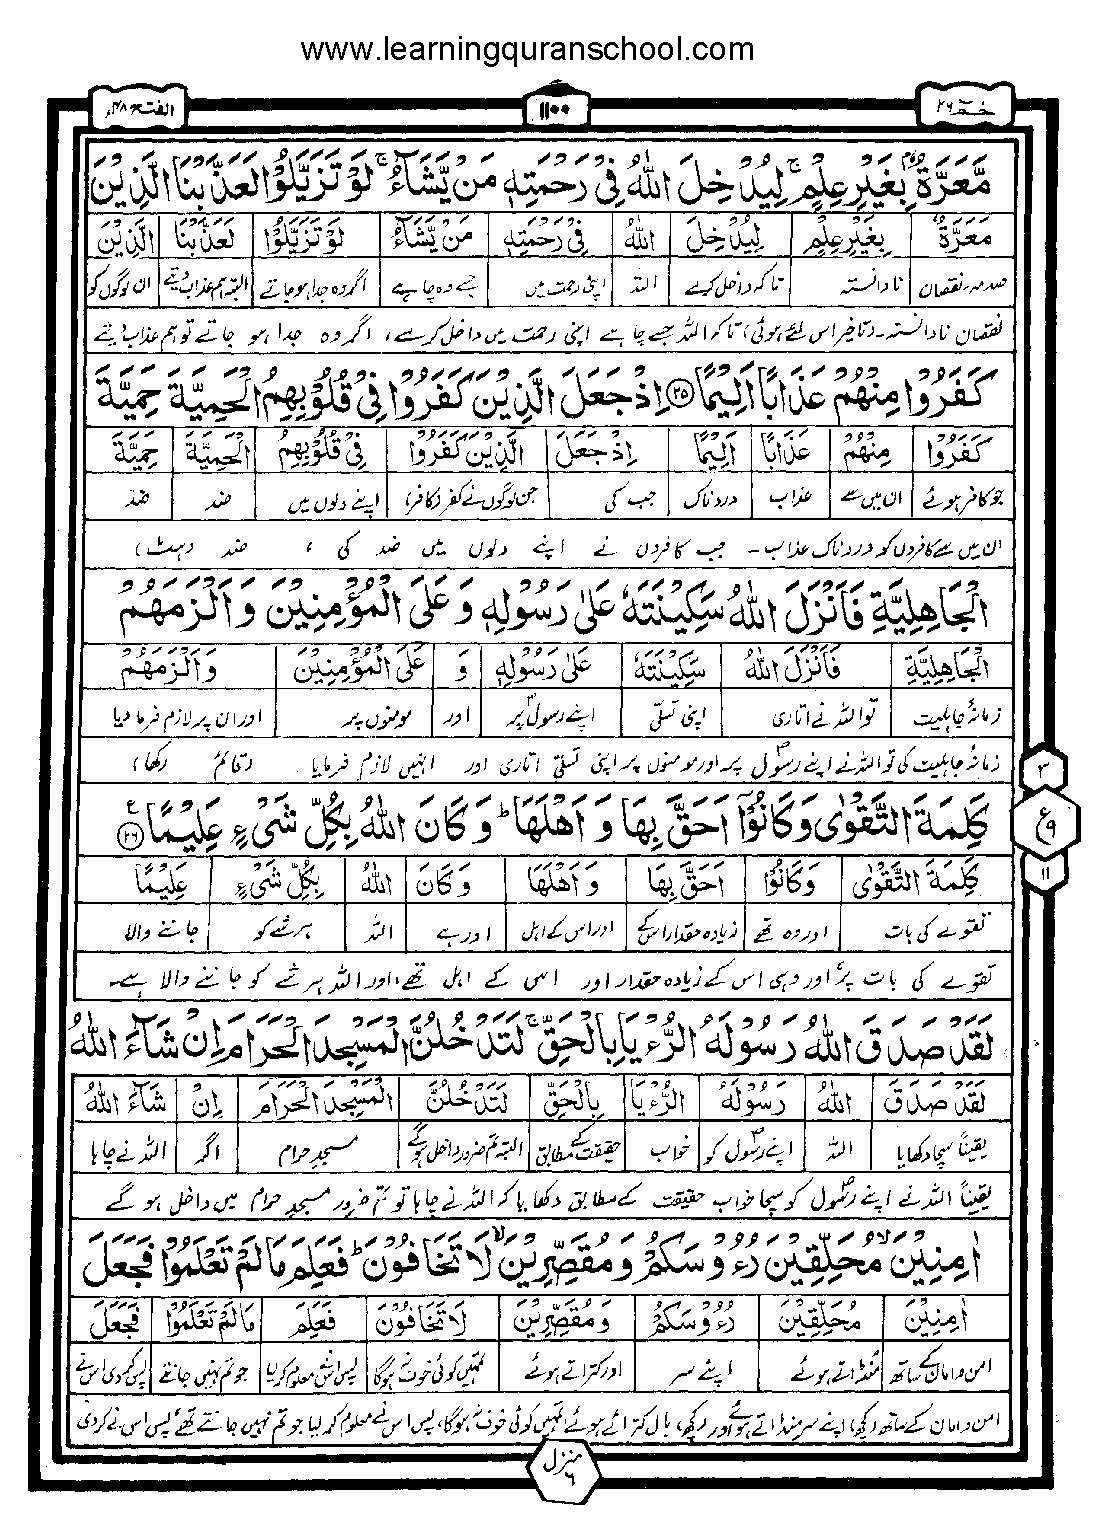 www.learningquranschool.com
حٰمٓ ۲۶
۱۱۰۰
الفتح ۴۸
مَّعَرَّةٌۢ بِغَيْرِ عِلْمٍ ۚ لِيُدْخِلَ اللّٰهُ فِيْ رَحْمَتِهٖ مَنْ يَّشَآءُ ۚ لَوْ تَزَيَّلُوْا لَعَذَّبْنَا الَّذِيْنَ
مَعَرَّةٌ بِغَيْرِ عِلْمٍ لِيُدْخِلَ اللّٰهُ فِيْ رَحْمَتِهٖ مَنْ يَّشَآءُ لَوْ تَزَيَّلُوْا لَعَذَّبْنَا الَّذِيْنَ
صدمہ، نقصان نادانستہ تاکہ داخل کرے اللہ اپنی رحمت میں جسے وہ چاہے اگر وہ جدا ہو جاتے البتہ ہم عذاب دیتے ان لوگوں کو
نقصان نادانستہ۔ (تاخیر اس لئے ہوئی) تاکہ اللہ جسے چاہے اپنی رحمت میں داخل کرے، اگر وہ جدا ہو جاتے تو ہم عذاب دیتے
كَفَرُوْا مِنْهُمْ عَذَابًا اَلِيْمًا ۲۵ اِذْ جَعَلَ الَّذِيْنَ كَفَرُوْا فِيْ قُلُوْبِهِمُ الْحَمِيَّةَ حَمِيَّةَ
كَفَرُوْا مِنْهُمْ عَذَابًا اَلِيْمًا اِذْ جَعَلَ الَّذِيْنَ كَفَرُوْا فِيْ قُلُوْبِهِمُ الْحَمِيَّةَ حَمِيَّةَ
جو کافر ہوئے ان میں سے عذاب دردناک جب کی جن لوگوں نے کفر کیا (کافر) اپنے دلوں میں ضد ضد
ان میں سے کافروں کو دردناک عذاب۔ جب کافروں نے اپنے دلوں میں ضد کی ، ضد (ہٹ)
الْجَاهِلِيَّةِ فَاَنْزَلَ اللّٰهُ سَكِيْنَتَهٗ عَلٰى رَسُوْلِهٖ وَعَلَى الْمُؤْمِنِيْنَ وَاَلْزَمَهُمْ
الْجَاهِلِيَّةِ فَاَنْزَلَ اللّٰهُ سَكِيْنَتَهٗ عَلٰى رَسُوْلِهٖ وَ عَلَى الْمُؤْمِنِيْنَ وَاَلْزَمَهُمْ
زمانۂ جاہلیت تو اللہ نے اتاری اپنی تسلی اپنے رسولؐ پر اور مومنوں پر اور ان پر لازم فرما دیا
زمانۂ جاہلیت کی تو اللہ نے اپنے رسولؐ پر اور مومنوں پر اپنی تسلی اتاری اور انہیں لازم فرمایا (قائم رکھا)
۳
كَلِمَةَ التَّقْوٰى وَكَانُوْٓا اَحَقَّ بِهَا وَاَهْلَهَا ؕ وَكَانَ اللّٰهُ بِكُلِّ شَيْءٍ عَلِيْمًا ۲۶ ع
ع ۹
كَلِمَةَ التَّقْوٰى وَكَانُوْٓا اَحَقَّ بِهَا وَاَهْلَهَا وَكَانَ اللّٰهُ بِكُلِّ شَيْءٍ عَلِيْمًا
۱۱
تقوے کی بات اور وہ تھے زیادہ حقدار اس کے اور اس کے اہل اور ہے اللہ ہر شے کو جاننے والا
تقوے کی بات پر، اور وہی اس کے زیادہ حقدار اور اس کے اہل تھے، اور اللہ ہر شے کو جاننے والا ہے۔
لَقَدْ صَدَقَ اللّٰهُ رَسُوْلَهُ الرُّءْيَا بِالْحَقِّ ۚ لَتَدْخُلُنَّ الْمَسْجِدَ الْحَرَامَ اِنْ شَآءَ اللّٰهُ
لَقَدْ صَدَقَ اللّٰهُ رَسُوْلَهُ الرُّءْيَا بِالْحَقِّ لَتَدْخُلُنَّ الْمَسْجِدَ الْحَرَامَ اِنْ شَآءَ اللّٰهُ
یقیناً سچا دکھایا اللہ اپنے رسولؐ کو خواب حقیقت کے مطابق البتہ تم ضرور داخل ہو گے مسجد حرام اگر اللہ نے چاہا
یقیناً اللہ نے اپنے رسولؐ کو سچا خواب حقیقت کے مطابق دکھایا کہ اللہ نے چاہا تو تم ضرور مسجد حرام میں داخل ہو گے
اٰمِنِيْنَ ۙ مُحَلِّقِيْنَ رُءُوْسَكُمْ وَمُقَصِّرِيْنَ ۙ لَا تَخَافُوْنَ ؕ فَعَلِمَ مَا لَمْ تَعْلَمُوْا فَجَعَلَ
اٰمِنِيْنَ مُحَلِّقِيْنَ رُءُوْسَكُمْ وَمُقَصِّرِيْنَ لَا تَخَافُوْنَ فَعَلِمَ مَا لَمْ تَعْلَمُوْا فَجَعَلَ
امن و امان کے ساتھ منڈاتے ہوئے اپنے سر اور کتراتے ہوئے تمہیں کوئی خوف نہ ہوگا پس اس نے معلوم کر لیا جو تم نہیں جانتے پس کر دی اس نے
امن و امان کے ساتھ (کچھ) اپنے سر منڈاتے ہوئے اور (کچھ) بال کتراتے ہوئے تمہیں کوئی خوف نہ ہوگا، پس اس نے معلوم کر لیا جو تم نہیں جانتے تھے، پس اس نے کر دی
منزل ۶